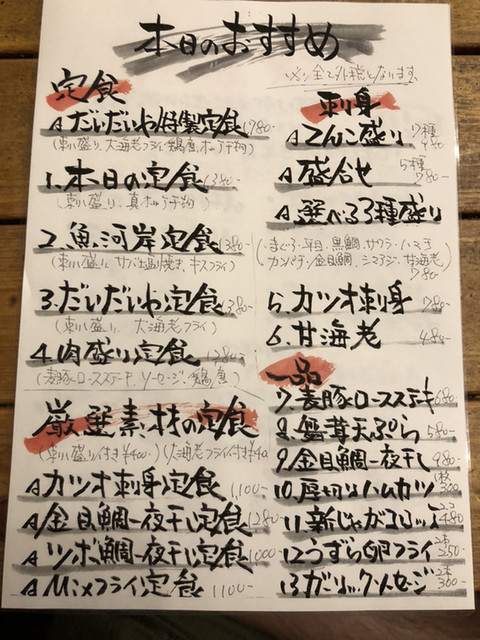 本日のおすすめ
定食
A だいだいわ特製定食 1780-
1. 本日の定食 1380-
2. 魚河岸定食 1380-
(刺し盛り、サバ塩焼き、キスフライ)
3. だいだいわ定食 1380-
(刺し盛り、大海老フライ)
4. 肉盛り定食 1280-
(麦豚ロースステーキ、ソーセージ、鶏唐)
厳選素材の定食
(刺し盛り付き¥400-)(大海老フライ付き
A カツオ刺身定食 1,100-
A 金目鯛一夜干し定食 1280
A ツボ鯛一夜干し定食 1000
A Mixフライ定食 1100-
※全て外税となります。
刺身
A てんこ盛り 7種
A 盛合せ 5種 780-
A 選べる3種盛り
(・まぐろ・平目・黒鯛・サワラ・ハマチ
カンパチ・金目鯛・シマアジ・甘海老
780-
5. カツオ刺身 780-
6. 甘海老 480-
一品
7. 麦豚ロースステキ 680
8. 舞茸天ぷら 580-
9. 金目鯛一夜干し 980-
10. 厚切りハムカツ 1枚
11. 新じゃがコロッケ 2コ 480
12. うずら卵フライ 2本 250-
13. ガーリックソーセージ 2本 360-